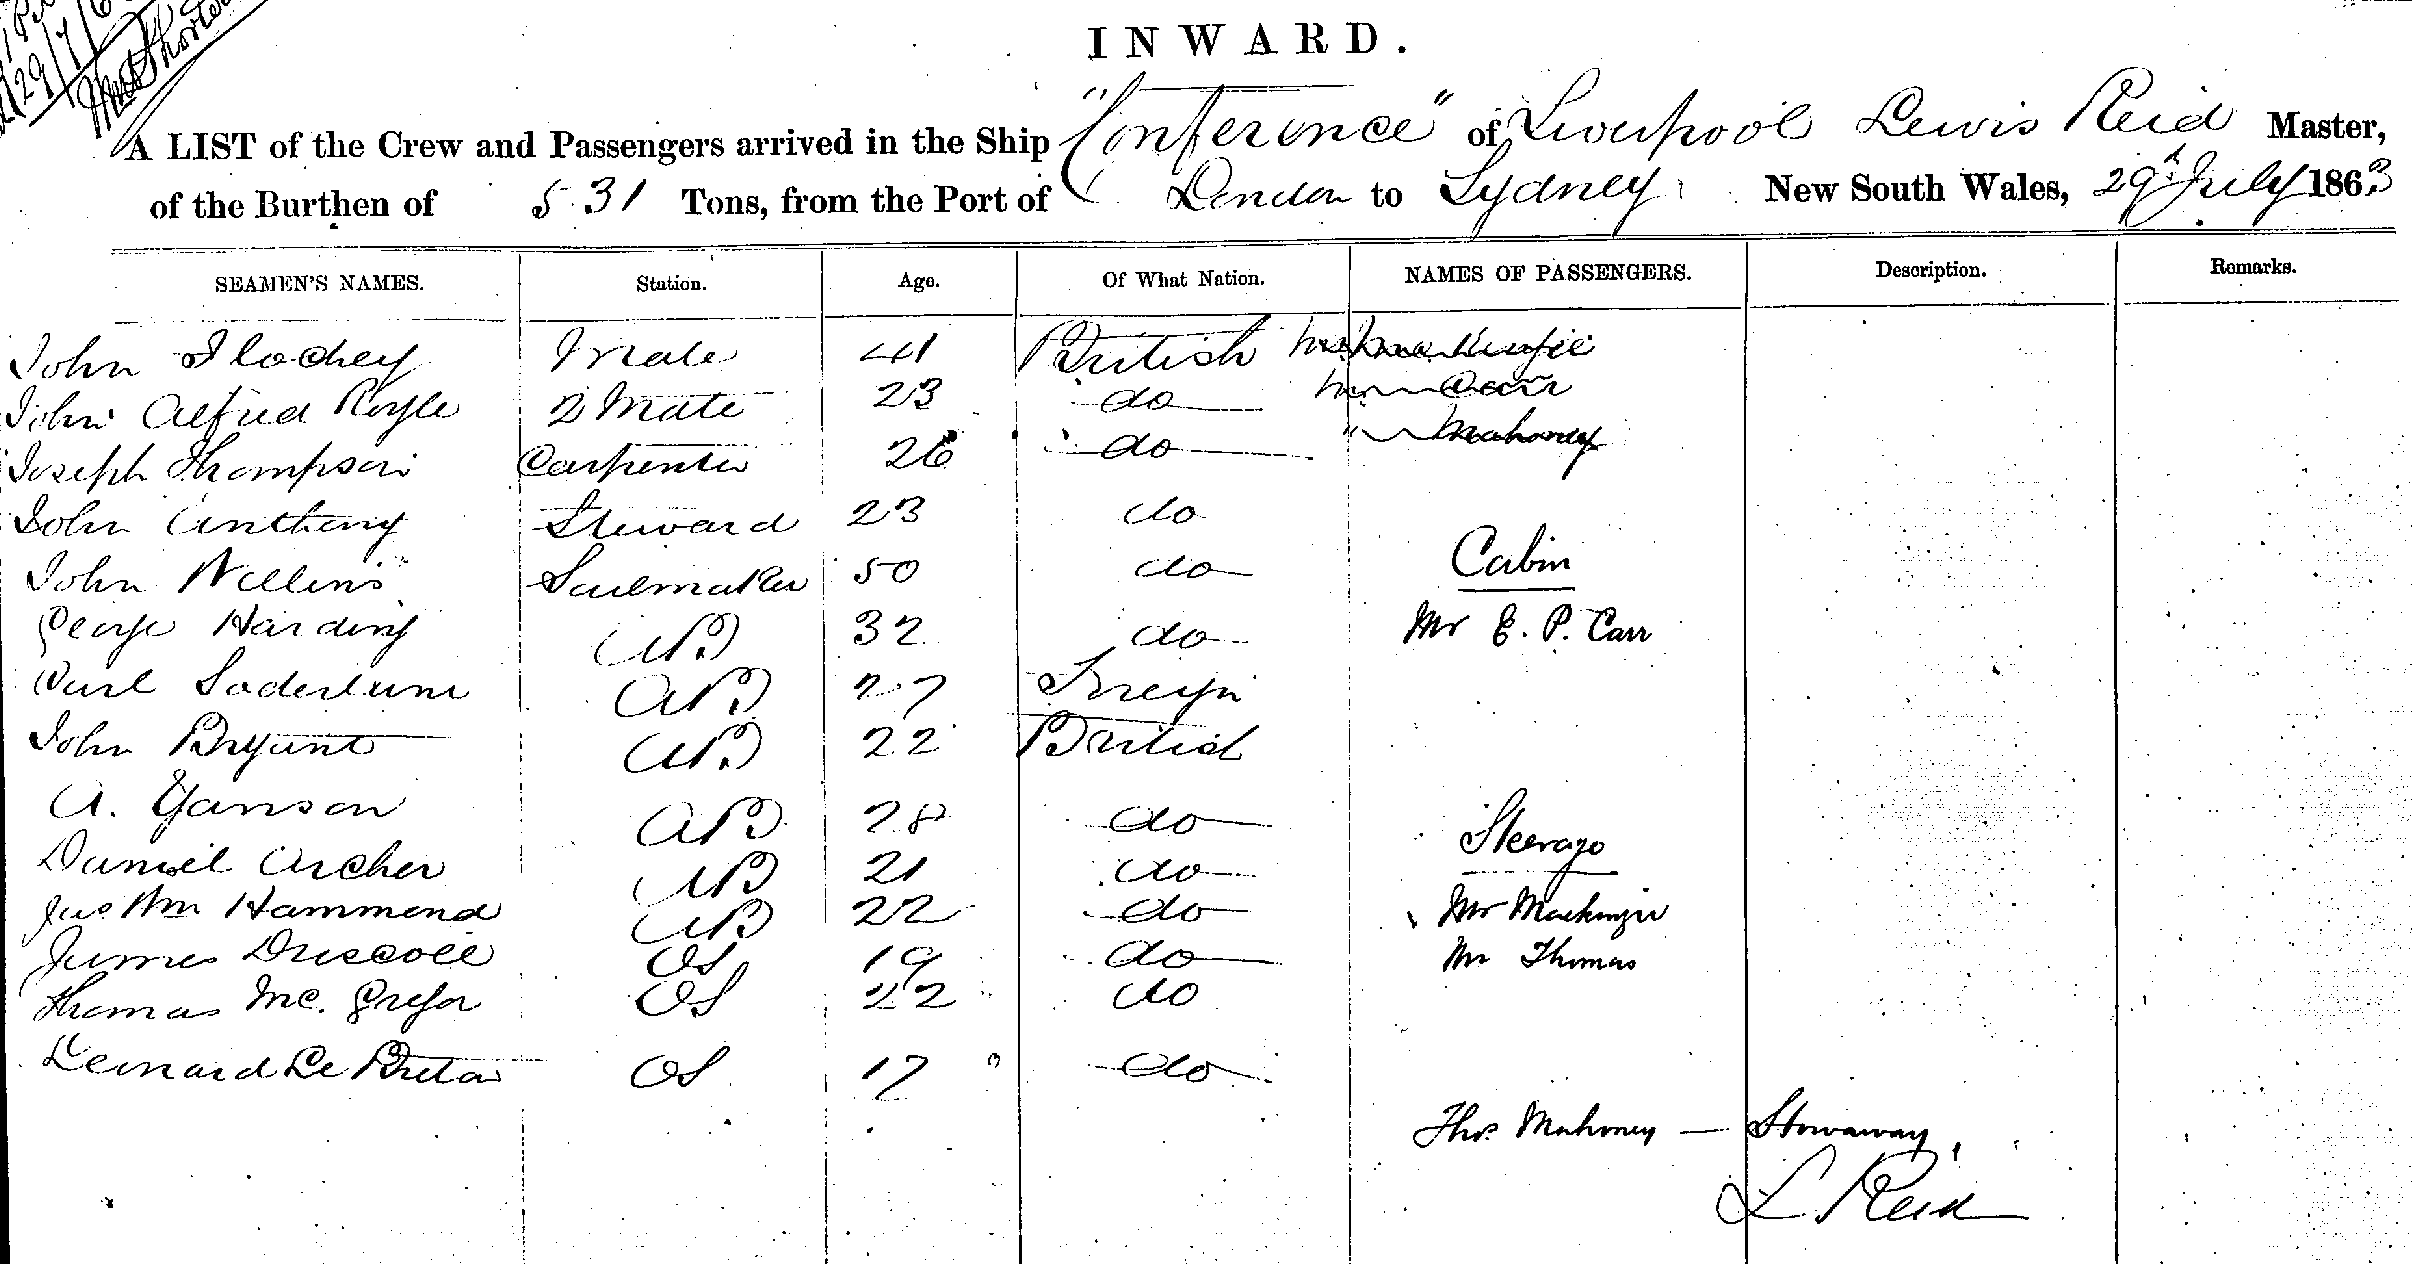 29/7/6
INWARD.
A LIST of the Crew and Passengers arrived in the Ship "Conference" of Liverpool Lewis Reid Master,
of the Burthen of 531 Tons, from the Port of London to Sydney New South Wales, 29th July 1863
SEAMEN'S NAMES. Station. Age. Of What Nation. NAMES OF PASSENGERS. Description. Remarks.
John Mate 41 British
John Alfred Royle 2 Mate 23 do Carr
Joseph Thompson Carpenter 26 do Mahoney
John Anthony Steward 23 do
John Sailmaker 50 do Cabin
George Harding AB 32 do Mr E. P. Carr
Carl Soderlund AB 27 Foreign
John Bryant AB 22 British
A. Yanson AB 28 do Steerage
Daniel Archer AB 21 do
Jas Wm Hammond AB 22 do Mr Mackenzie
James Driscoll OS 19 do Mr Thomas
Thomas Mc. Gregor OS 22 do
Leonard Le Breton OS 17 do
Thos Mahoney — Stowaway
L Reid